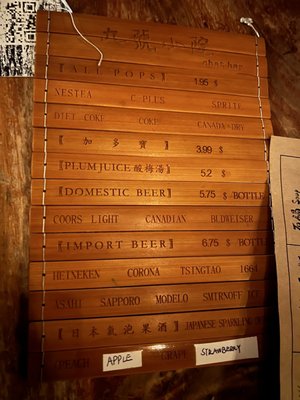 九號小院
【ALL POPS】 1.95 $
NESTEA C PLUS SPRITE
DIET COKE COKE CANADA DRY
【加多寶】 3.99 $
【PLUM JUICE 酸梅湯】 5.2 $
【DOMESTIC BEER】 5.75 $ BOTTLE
COORS LIGHT CANADIAN BUDWEISER
【IMPORT BEER】 6.75 $ BOTTLE
HEINEKEN CORONA TSINGTAO 1664
ASAHI SAPPORO MODELO SMIRNOFF ICE
【日本氣泡果酒】 JAPANESE SPARKLING
PEACH APPLE GRAPE STRAWBERRY